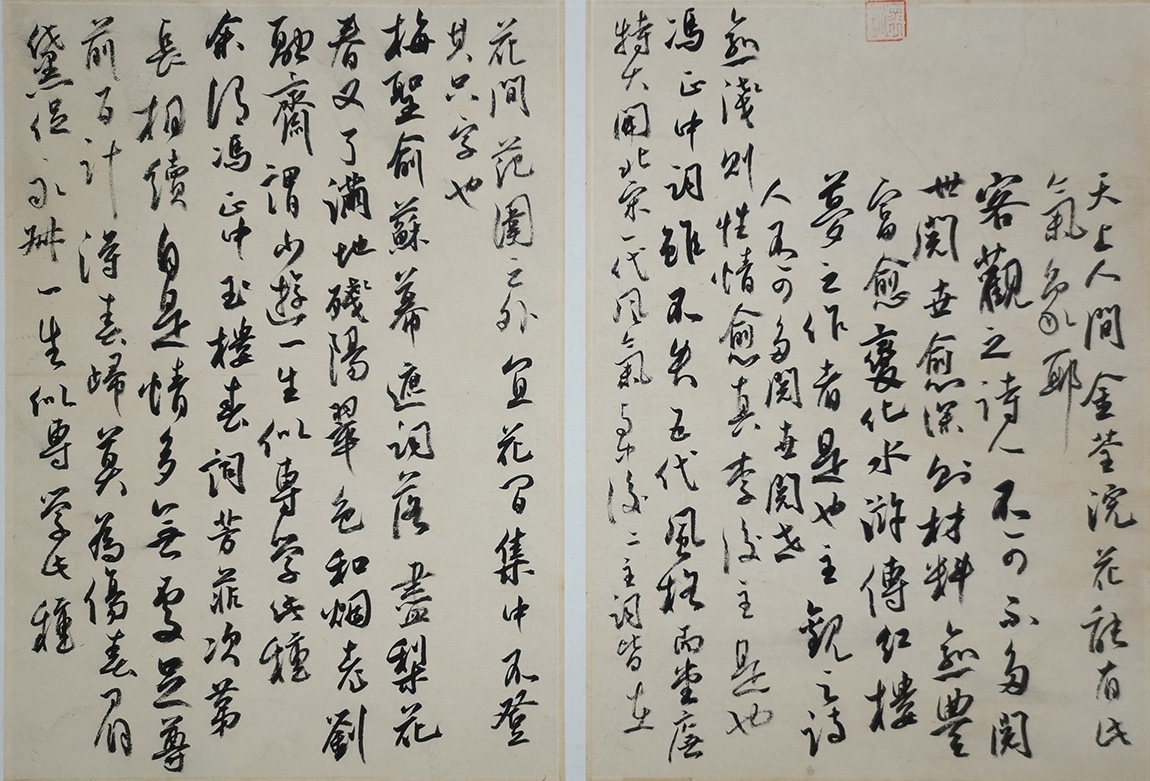 天上人間金荃浣花能有此
氣象耶
客觀之詩人不可不多閱
世閱世愈深則材料愈豐
富愈變化水滸傳紅樓
夢之作者是也主觀之詩
人不可多閱世閱世
愈淺則性情愈真李後主是也
馮正中詞雖不失五代風格而堂廡
特大開北宋一代風氣與中後二主詞皆在
花間范圍之外宜花間集中不登
其只字也
梅聖俞蘇幕遮詞落盡梨花
春又了滿地殘陽翠色和烟老劉
融齋謂少游一生似專學此種
余謂馮正中玉樓春詞芳菲次第
長相續自是情多無處足尊
前百計得春歸莫為傷春眉
黛促永叔一生似專學此種